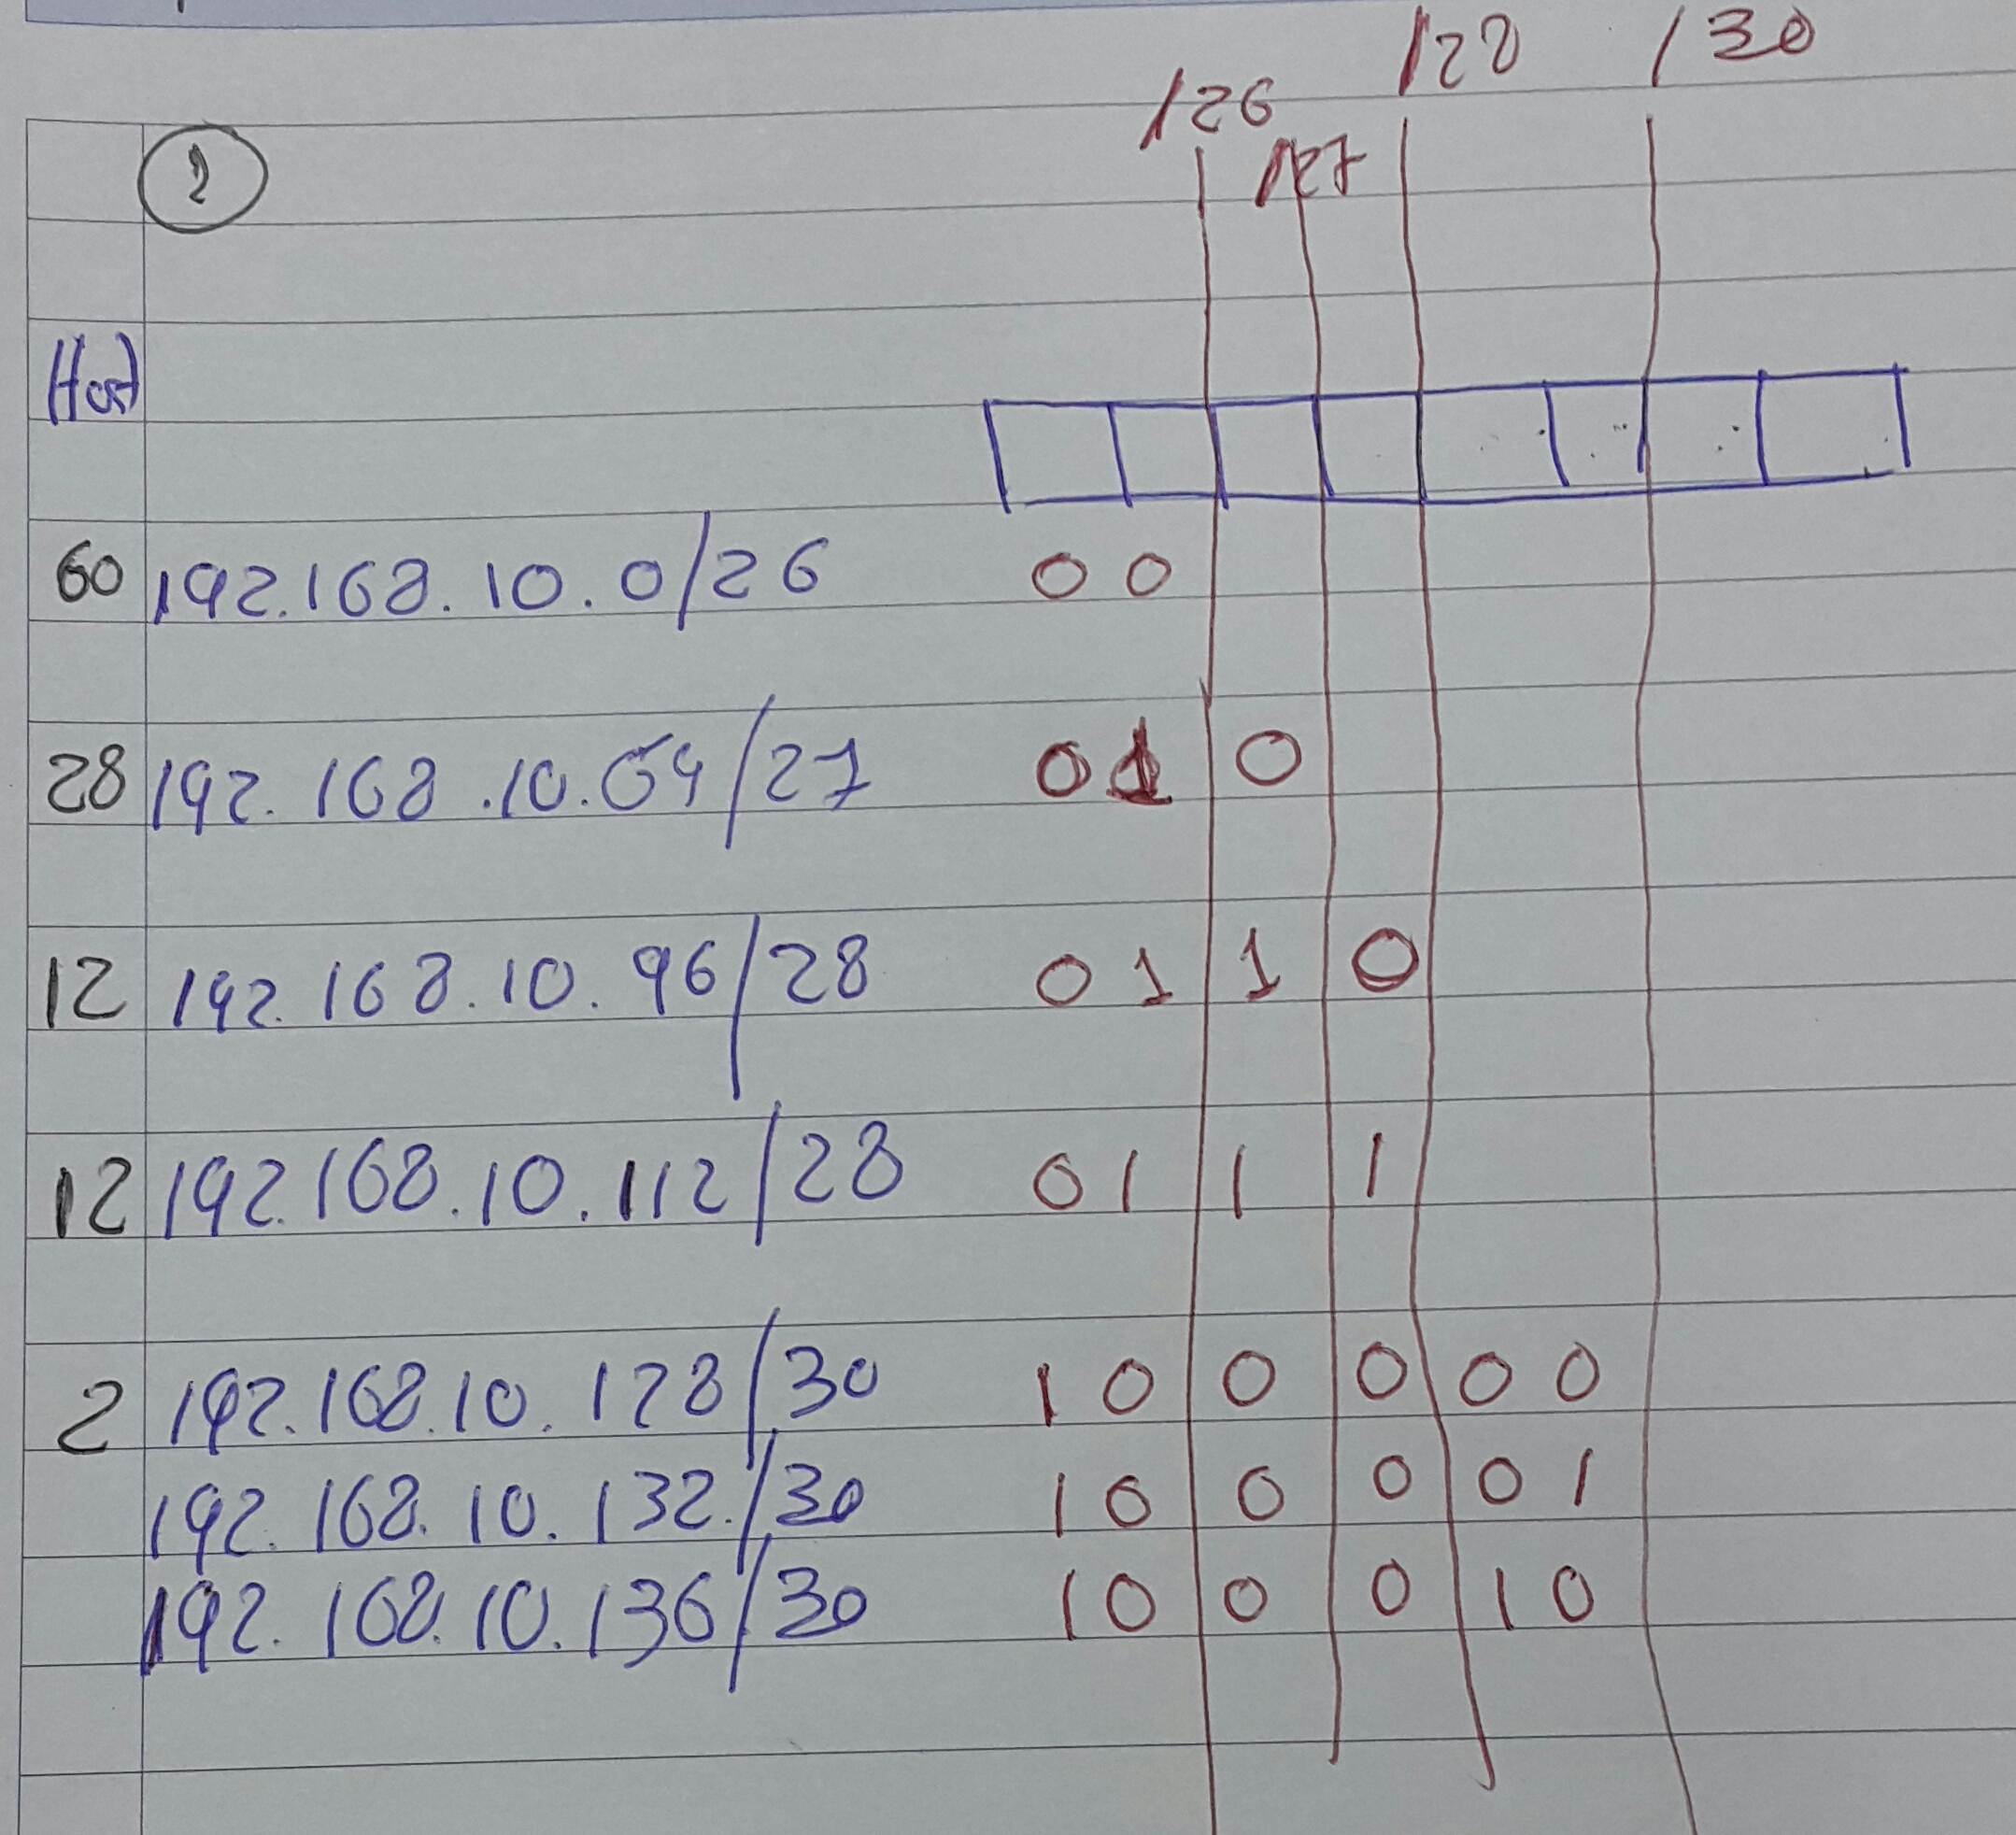 /26 /27 /28 /30
2
Host
60 192.168.10.0/26 0 0
28 192.168.10.64/27 0 1 0
12 192.168.10.96/28 0 1 1 0
12 192.168.10.112/28 0 1 1 1
2 192.168.10.128/30 1 0 0 0 0 0
192.168.10.132/30 1 0 0 0 0 1
192.168.10.136/30 1 0 0 0 1 0